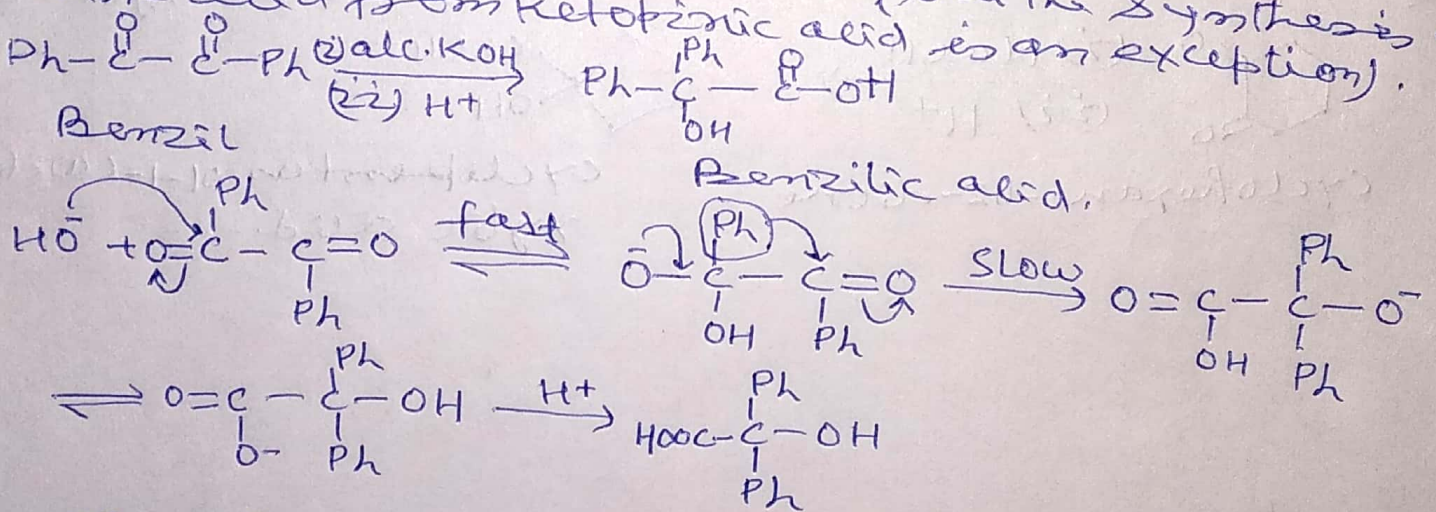 from Ketopinic acid is an exception). the synthesis
Ph-C(=O)-C(=O)-Ph (i) alc. KOH (ii) H+ → Ph-C(Ph)(OH)-C(=O)-OH
Benzil
Benzilic acid.
HO⁻ + O=C(Ph)-C(Ph)=O fast ⇌ O⁻-C(Ph)(OH)-C(Ph)=O slow → O=C(OH)-C(Ph)(Ph)-O⁻
⇌ O=C(O-)-C(Ph)(Ph)-OH H+ → HOOC-C(Ph)(Ph)-OH